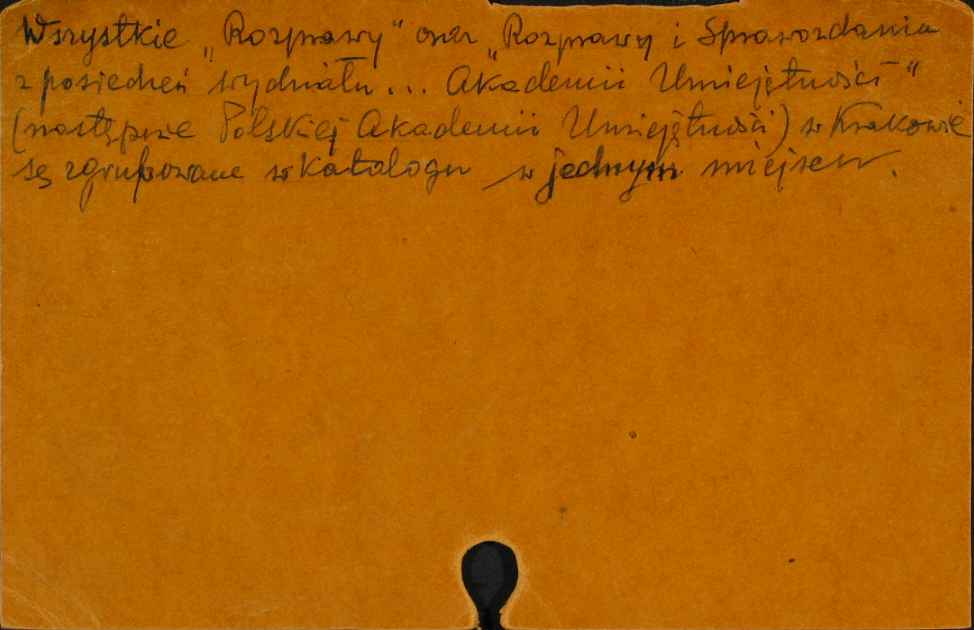 Wszystkie „Rozprawy“ oraz „Rozprawy i Sprawozdania
z posiedzeń wydziału... Akademii Umiejętności“
(następnie Polskiej Akademii Umiejętności) w Krakowie
są zgrupowane w katalogu w jednym miejscu.